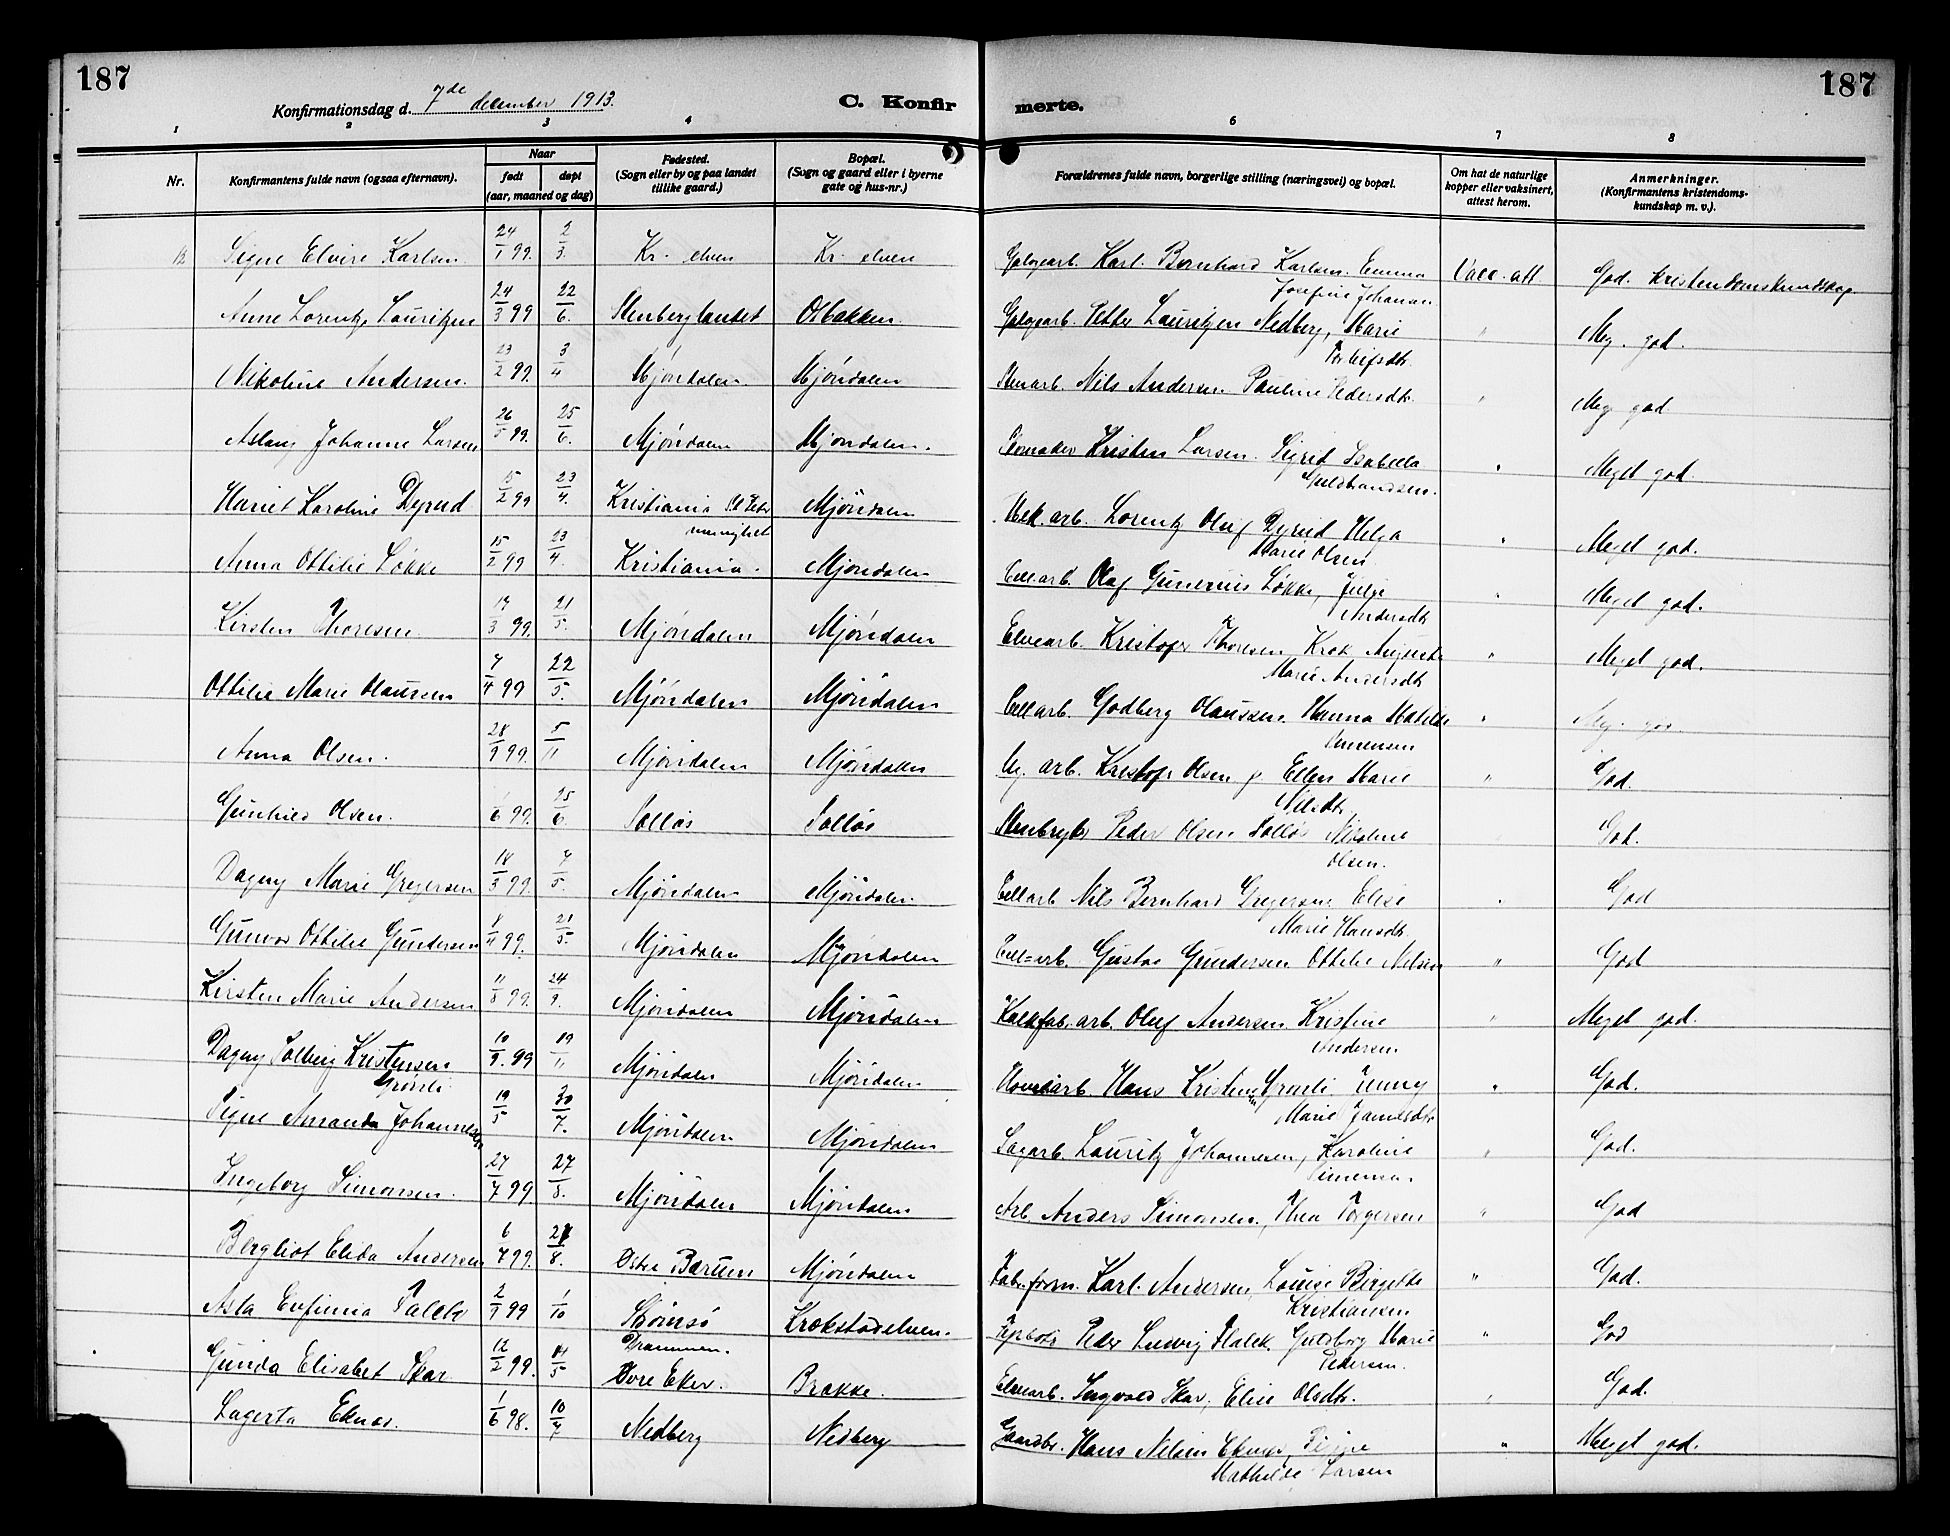 187
187
Konfirmationsdag d. 7de december 1913.
C. Konfir
merte.
1 2 3 4 6 7 8
Nr.
Konfirmantens fulde navn (ogsaa efternavn).
Naar
født
døpt
(aar, maaned og dag)
Fødested.
(Sogn eller by og paa landet
tillike gaard.)
Bopæl.
(Sogn og gaard eller i byerne
gate og hus-nr.)
Forældrenes fulde navn, borgerlige stilling (næringsvei) og bopæl.
Om hat de naturlige
kopper eller vaksinert,
attest herom.
Anmerkninger.
(Konfirmantens kristendoms-
kundskap m. v.).
12 Signe Elvire Karlsen 24/1 99. 2/3. Kr. elven Kr. elven Karl Bernhard Karlsen. Emma Vacc. att God. kristendomskundskap
Josefine Johansen
Anne Lorentze Lauritzen 24/3 99 22/6. Stenberglandet Osbakken. Petter Lauritzen Nedberg, Marie " Meg. god.
Nikoline Andersen. 23/2 99. 3/4 Mjöndalen Mjöndalen Stenarb. Nils Andersen. Pauline Pedersdtr. " Meg god
Aslaug Johanne Larsen 26/5 99. 25/6. Mjöndalen Mjöndalen. Skomaker Kristen Larsen. Sigrid Isabella " Meget god.
Guldbrandsen.
Hariet Karoline Dyrud 15/2 99 23/4. Kristiania Mjöndalen arb. Lorentz Oluf Dyrud Helga " Meget god.
menighet
Marie Olsen
Anna Ottilie Løkke 15/2 99 23/4. Kristiania. Mjöndalen Cellarb. Olaf Gunerius Løkke, " Meget god.
Andersdtr
Kirsten Thoresen 17/3 99. 21/5. Mjöndalen Mjöndalen Elvearb. Kristofer Thoresen Krok Auguste " Meget god.
Marie Andersdtr
Ottilie Marie Olaussen 7/4 99 22/5. Mjöndalen Mjöndalen Cellarb. Godberg Olaussen. Hanna Matilde " Meg. god.
Anna Olsen. 28/9 99. 5/11 Mjöndalen Mjöndalen arb. Kristofr Olsen Ellen Marie " God.
Nilsdtr.
Gunhild Olsen. 1/6 99. 25/6. Solløs Solløs Peder Olsen Solløs Nikoline God.
Olsen.
Dagny Marie Gregersen 18/3 99. 7/5. Mjöndalen Mjöndalen. Cellarb Nils Bernhard Gregersen Elise " God
Marie Hansdtr.
Gunvor Ottilie Gundersen 8/4 99. 21/5. Mjöndalen Mjöndalen Cell=arb. Gustav Gundersen Ottilie Nelsen " God
Kirsten Marie Andersen 11/8 99. 24/9. Mjöndalen Mjöndalen Kalkfab. arb. Oluf Andersen Kristine " Meget god.
Andersen
Dagny Solberg Kristensen 10/9. 99 19/11 Mjöndalen Mjöndalen Hans Kristensen Grønli Jenny " God.
Grønli
Marie
Signe Amanda Johannessen 19/5 30/7. Mjöndalen Mjöndalen Sagarb. Lauritz Johannesen, Karoline " God.
Simensen.
Ingeborg Simonsen. 27/7 99. 27/8. Mjöndalen Mjöndalen Arb. Anders Simonsen, Thea Torgersen " God
Bergliot Elida Andersen 6/7 99. 8. Østre Bærum Mjöndalen Fabr. form. Karl Andersen, Louise Birgitte " God.
Kristiansen
Asta Eufemia Falck 2/9 99 1/10 Strømsø Krokstadelven. Peder Ludvig Falck, Guldborg Marie " God
Drammen.
Pedersen.
Gunda Elisabet Skar 12/2 99. 5 Øvre Eker. Brække. Elvearb. Ingvald Skar, Elise Olsdtr. " God.
Lagerta Eknes. 1/6 98. 10/7 Nedberg Nedberg Gaardbr. Hans Nilsen Eknes, " Meget god.
Mathilde Larsen